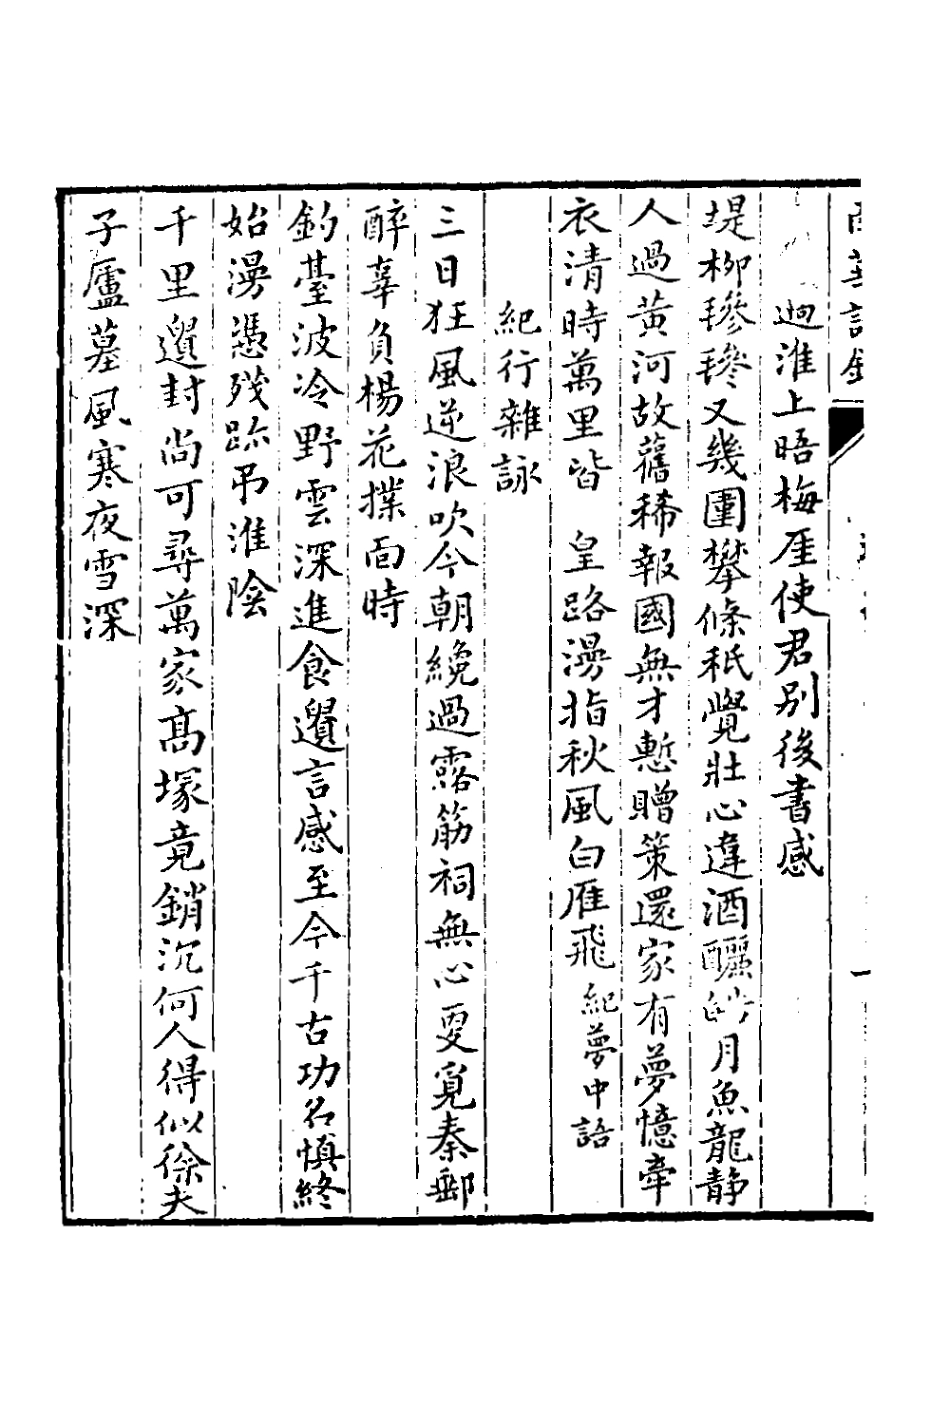 迴淮上晤梅厓使君別後書感
堤柳毿毿又幾圍攀條秖覺壯心違酒釃皓月魚龍靜
人過黃河故舊稀報國無才慙贈策還家有夢憶牽
衣清時萬里皆 皇路漫指秋風白雁飛紀夢中語
紀行雜詠
三日狂風逆浪吹今朝纔過露筋祠無心更覓秦郵
醉辜負楊花撲面時
釣臺波冷野雲深進食遺言感至今千古功名慎終
始漫憑殘跡弔淮陰
千里遺封尚可尋萬家高塚竟銷沉何人得似徐夫
子廬墓風寒夜雪深